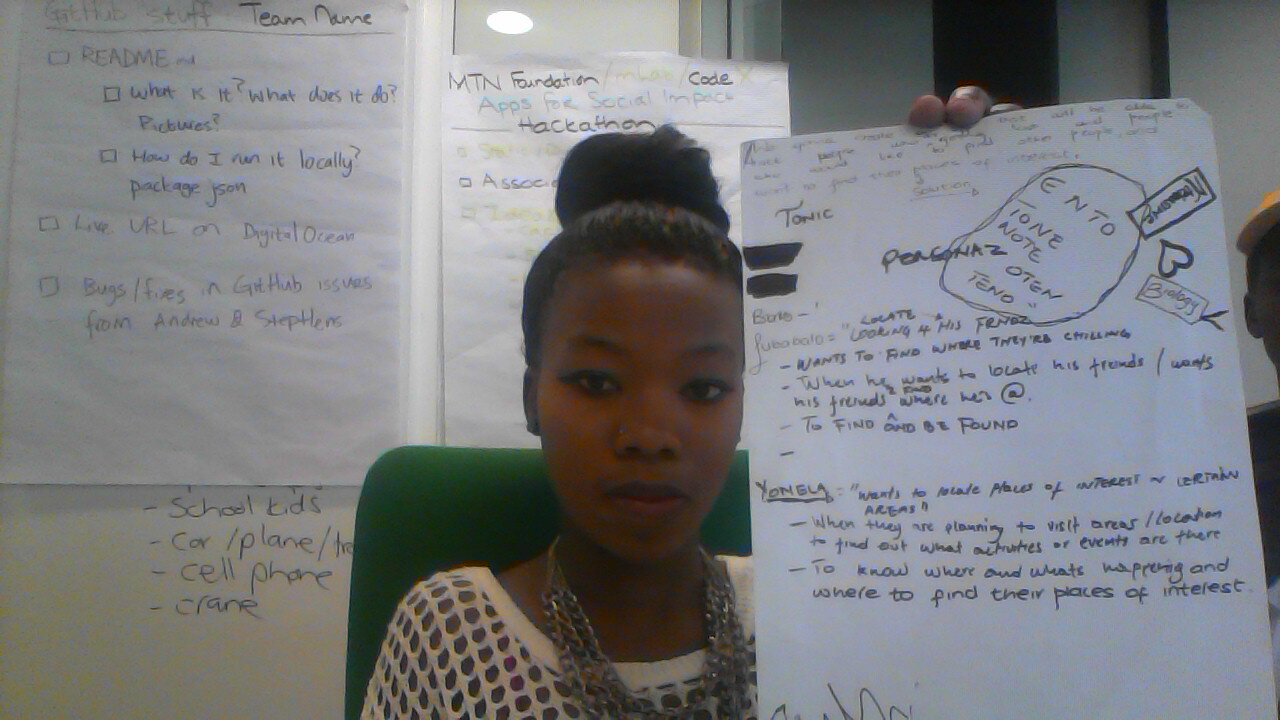 GitHub stuff Team Name
README.md
What is it? What does it do?
Pictures?
How do I run it locally?
package json
Live URL on Digital Ocean
Bugs/fixes in GitHub issues
from Andrew & Stephens
- School kids
- Car/plane/
- cell phone
- crane
MTN Foundation / mLab / Code X
Apps for Social Impact
Hackathon
Associ
people
other people, and
want to find their places of interest.
Solution
TONIC
ENTO
TONE
NOTE
OTEN
TENO "
PERSONAZ
Biology
LOCATE
LOOKING 4 HIS FRNDZ
- WANTS TO FIND WHERE THEY'RE CHILLING
- When he wants to locate his friends / wants
his friends where he's @.
- To FIND AND BE FOUND
-
YONELA: "wants to locate places of INTEREST ~ CERTAIN
AREAS"
- When they are planning to visit areas/location
to find out what activities or events are there
- To know where and whats happening and
where to find their places of interest.